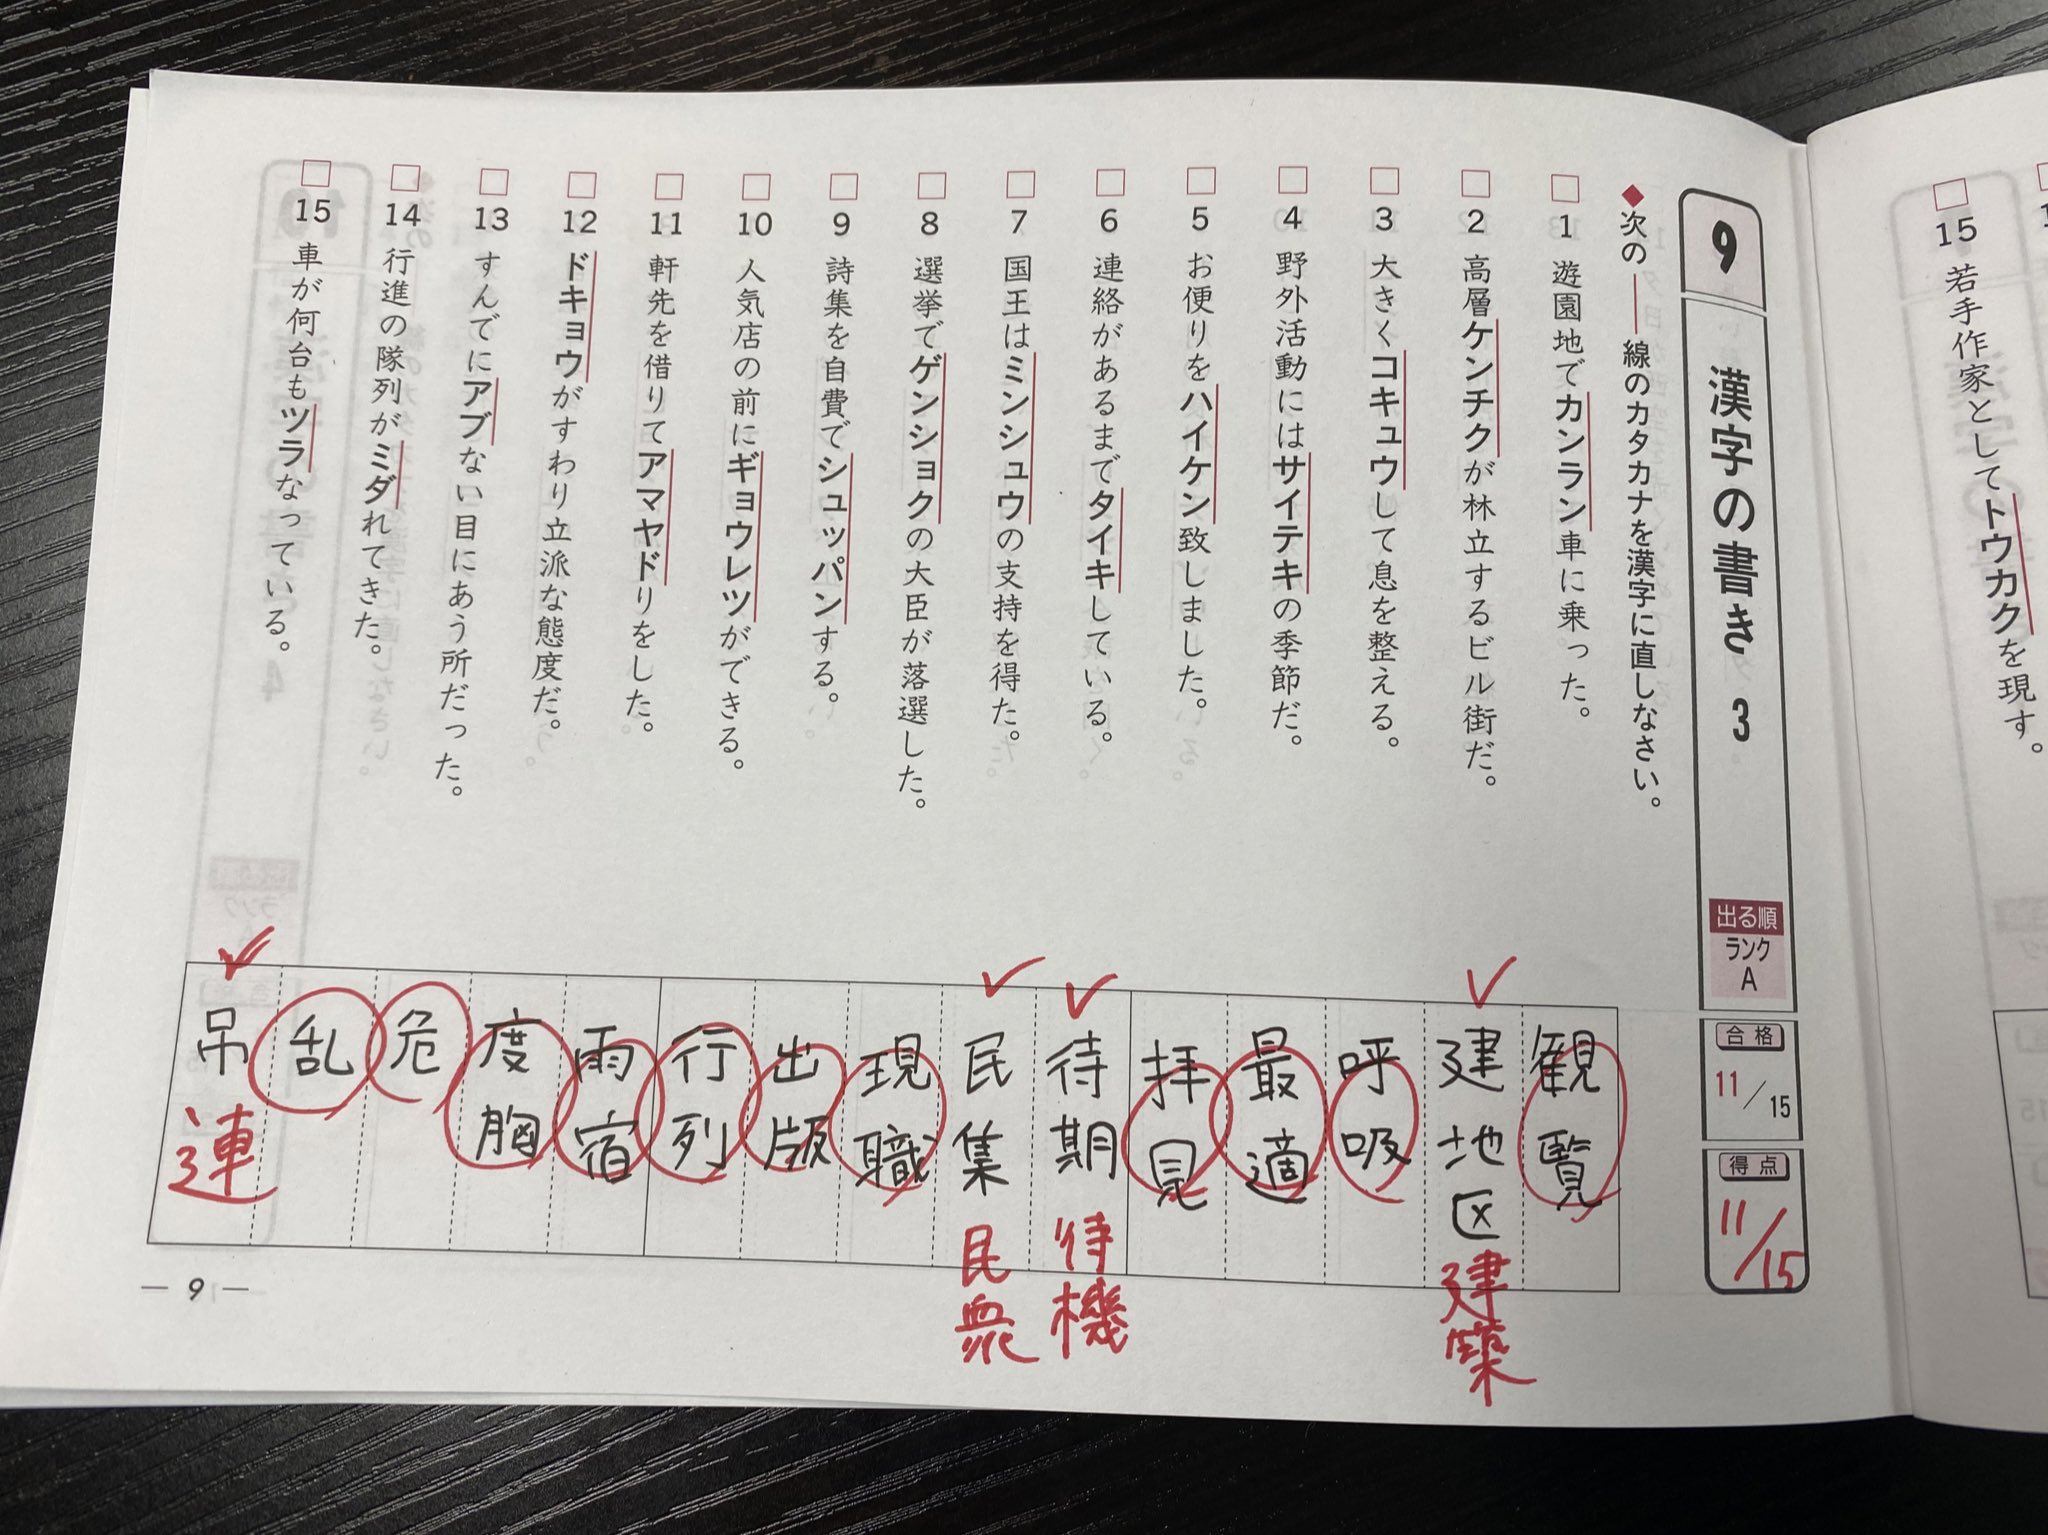 15 若手作家としてトウカクを現す。
9 漢字の書き 3
出る順
ランク
A
合格
11/15
得点
11/15
◆次の――線のカタカナを漢字に直しなさい。
□ 1 遊園地でカンラン車に乗った。
□ 2 高層ケンチクが林立するビル街だ。
□ 3 大きくコキュウして息を整える。
□ 4 野外活動にはサイテキの季節だ。
□ 5 お便りをハイケン致しました。
□ 6 連絡があるまでタイキしている。
□ 7 国王はミンシュウの支持を得た。
□ 8 選挙でゲンショクの大臣が落選した。
□ 9 詩集を自費でシュッパンする。
□ 10 人気店の前にギョウレツができる。
□ 11 軒先を借りてアマヤドりをした。
□ 12 ドキョウがすわり立派な態度だ。
□ 13 すんでにアブない目にあう所だった。
□ 14 行進の隊列がミダれてきた。
□ 15 車が何台もツラなっている。
観覧
建地区 建築
呼吸
最適
拝見
待期 待機
民集 民衆
現職
出版
行列
雨宿
度胸
危
乱
吊 連
― 9 ―